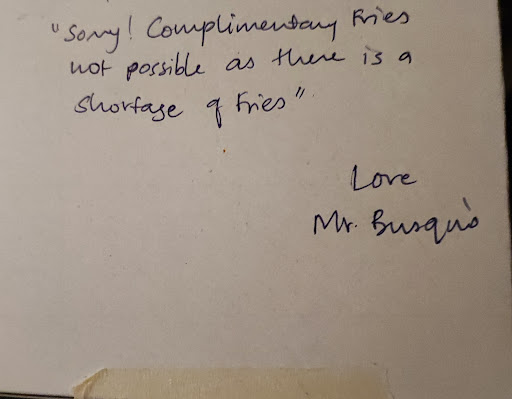 "Sorry! Complimentary Fries
not possible as there is a
shortage of Fries"
Love
Mr. Busqu's